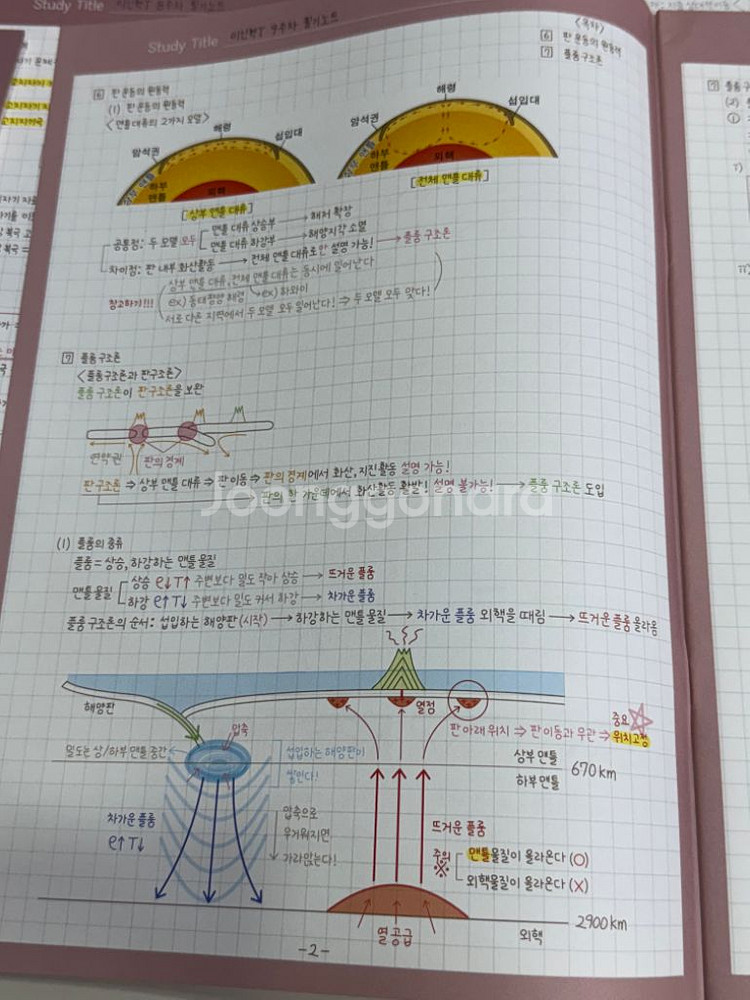 Study Title
Study Title 이신혁T 9주차 필기노트
<목차>
⑥ 판 운동의 원동력
⑦ 플룸 구조론
⑥ 판 운동의 원동력
(1) 판 운동의 원동력
<맨틀 대류의 2가지 모델>
해령
암석권
섭입대
상부 맨틀
하부 맨틀
외핵
[상부 맨틀 대류]
해령
암석권
섭입대
상부 맨틀
하부 맨틀
외핵
[전체 맨틀 대류]
공통점: 두 모델 모두
맨틀 대류 상승부 → 해저 확장
맨틀 대류 하강부 → 해양지각 소멸
차이점: 판 내부 화산활동 → 전체 맨틀 대류로만 설명 가능! → 플룸 구조론
참고하기!!!
상부 맨틀 대류, 전체 맨틀 대류는 동시에 일어난다
ex) 동태평양 해령 ex) 하와이
서로 다른 지역에서 두 모델 모두 일어난다! ⇒ 두 모델 모두 맞다!
⑦ 플룸 구조론
<플룸구조론과 판구조론>
플룸 구조론이 판구조론을 보완
연약권
판의 경계
판구조론 ⇒ 상부 맨틀 대류 ⇒ 판 이동 ⇒ 판의 경계에서 화산, 지진 활동 설명 가능!
판의 한 가운데에서 화산활동 활발! 설명 불가능! → 플룸 구조론 도입
Joonggonara
(1) 플룸의 종류
플룸 = 상승, 하강하는 맨틀 물질
맨틀 물질
상승 ρ↓ T↑ 주변보다 밀도 작아 상승 → 뜨거운 플룸
하강 ρ↑ T↓ 주변보다 밀도 커서 하강 → 차가운 플룸
플룸 구조론의 순서: 섭입하는 해양판 (시작) → 하강하는 맨틀 물질 → 차가운 플룸 외핵을 때림 → 뜨거운 플룸 올라옴
해양판
열점
압축
중요
판 아래 위치 ⇒ 판 이동과 무관 ⇒ 위치고정
밀도는 상/하부 맨틀 중간
섭입하는 해양판이
쌓인다!
상부 맨틀
670km
하부 맨틀
차가운 플룸
ρ↑ T↓
압축으로
무거워지면
가라앉는다!
뜨거운 플룸
주의
※
맨틀물질이 올라온다 (O)
외핵물질이 올라온다 (X)
2900km
열 공급
외핵
-2-